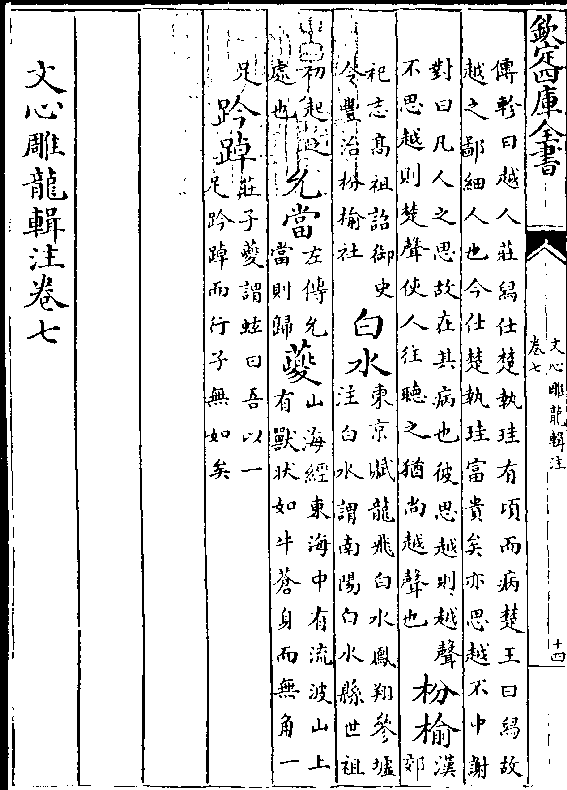 欽定四庫全書
文心雕龍輯注
卷七
十四
傳軫曰越人莊舄仕楚執珪有頃而病楚王曰舄故
越之鄙細人也今仕楚執珪富貴矣亦思越不中謝
對曰凡人之思故在其病也彼思越則越聲
不思越則楚聲使人往聽之猶尚越聲也
枌榆
漢
郊
祀志高祖詔御史
令豐治枌榆社
白水
東京賦龍飛白水鳳翔參墟
注白水謂南陽白水縣世祖
初起之
處也
允當
左傳允
當則歸
夔
山海經東海中有流波山上
有獸狀如牛蒼身而無角一
足
趻踔
莊子夔謂蚿曰吾以一
足趻踔而行予無如矣
文心雕龍輯注卷七